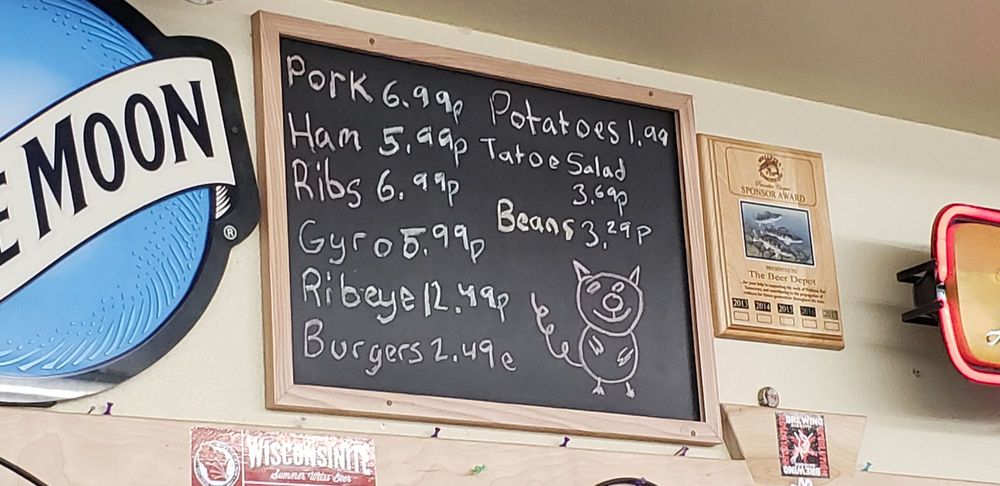 E MOON
®
Pork 6.99p
Ham 5.99p
Ribs 6.99p
Gyro 6.99p
Ribeye 12.49p
Burgers 2.49e
Potatoes 1.99
Tatoe Salad
3.69p
Beans 3.29p
SPONSOR AWARD
PRESENTED TO
The Beer Depot
2013 2014 2015
WISCONSINITE
Summer Weiss Beer
BREWING
BREWING